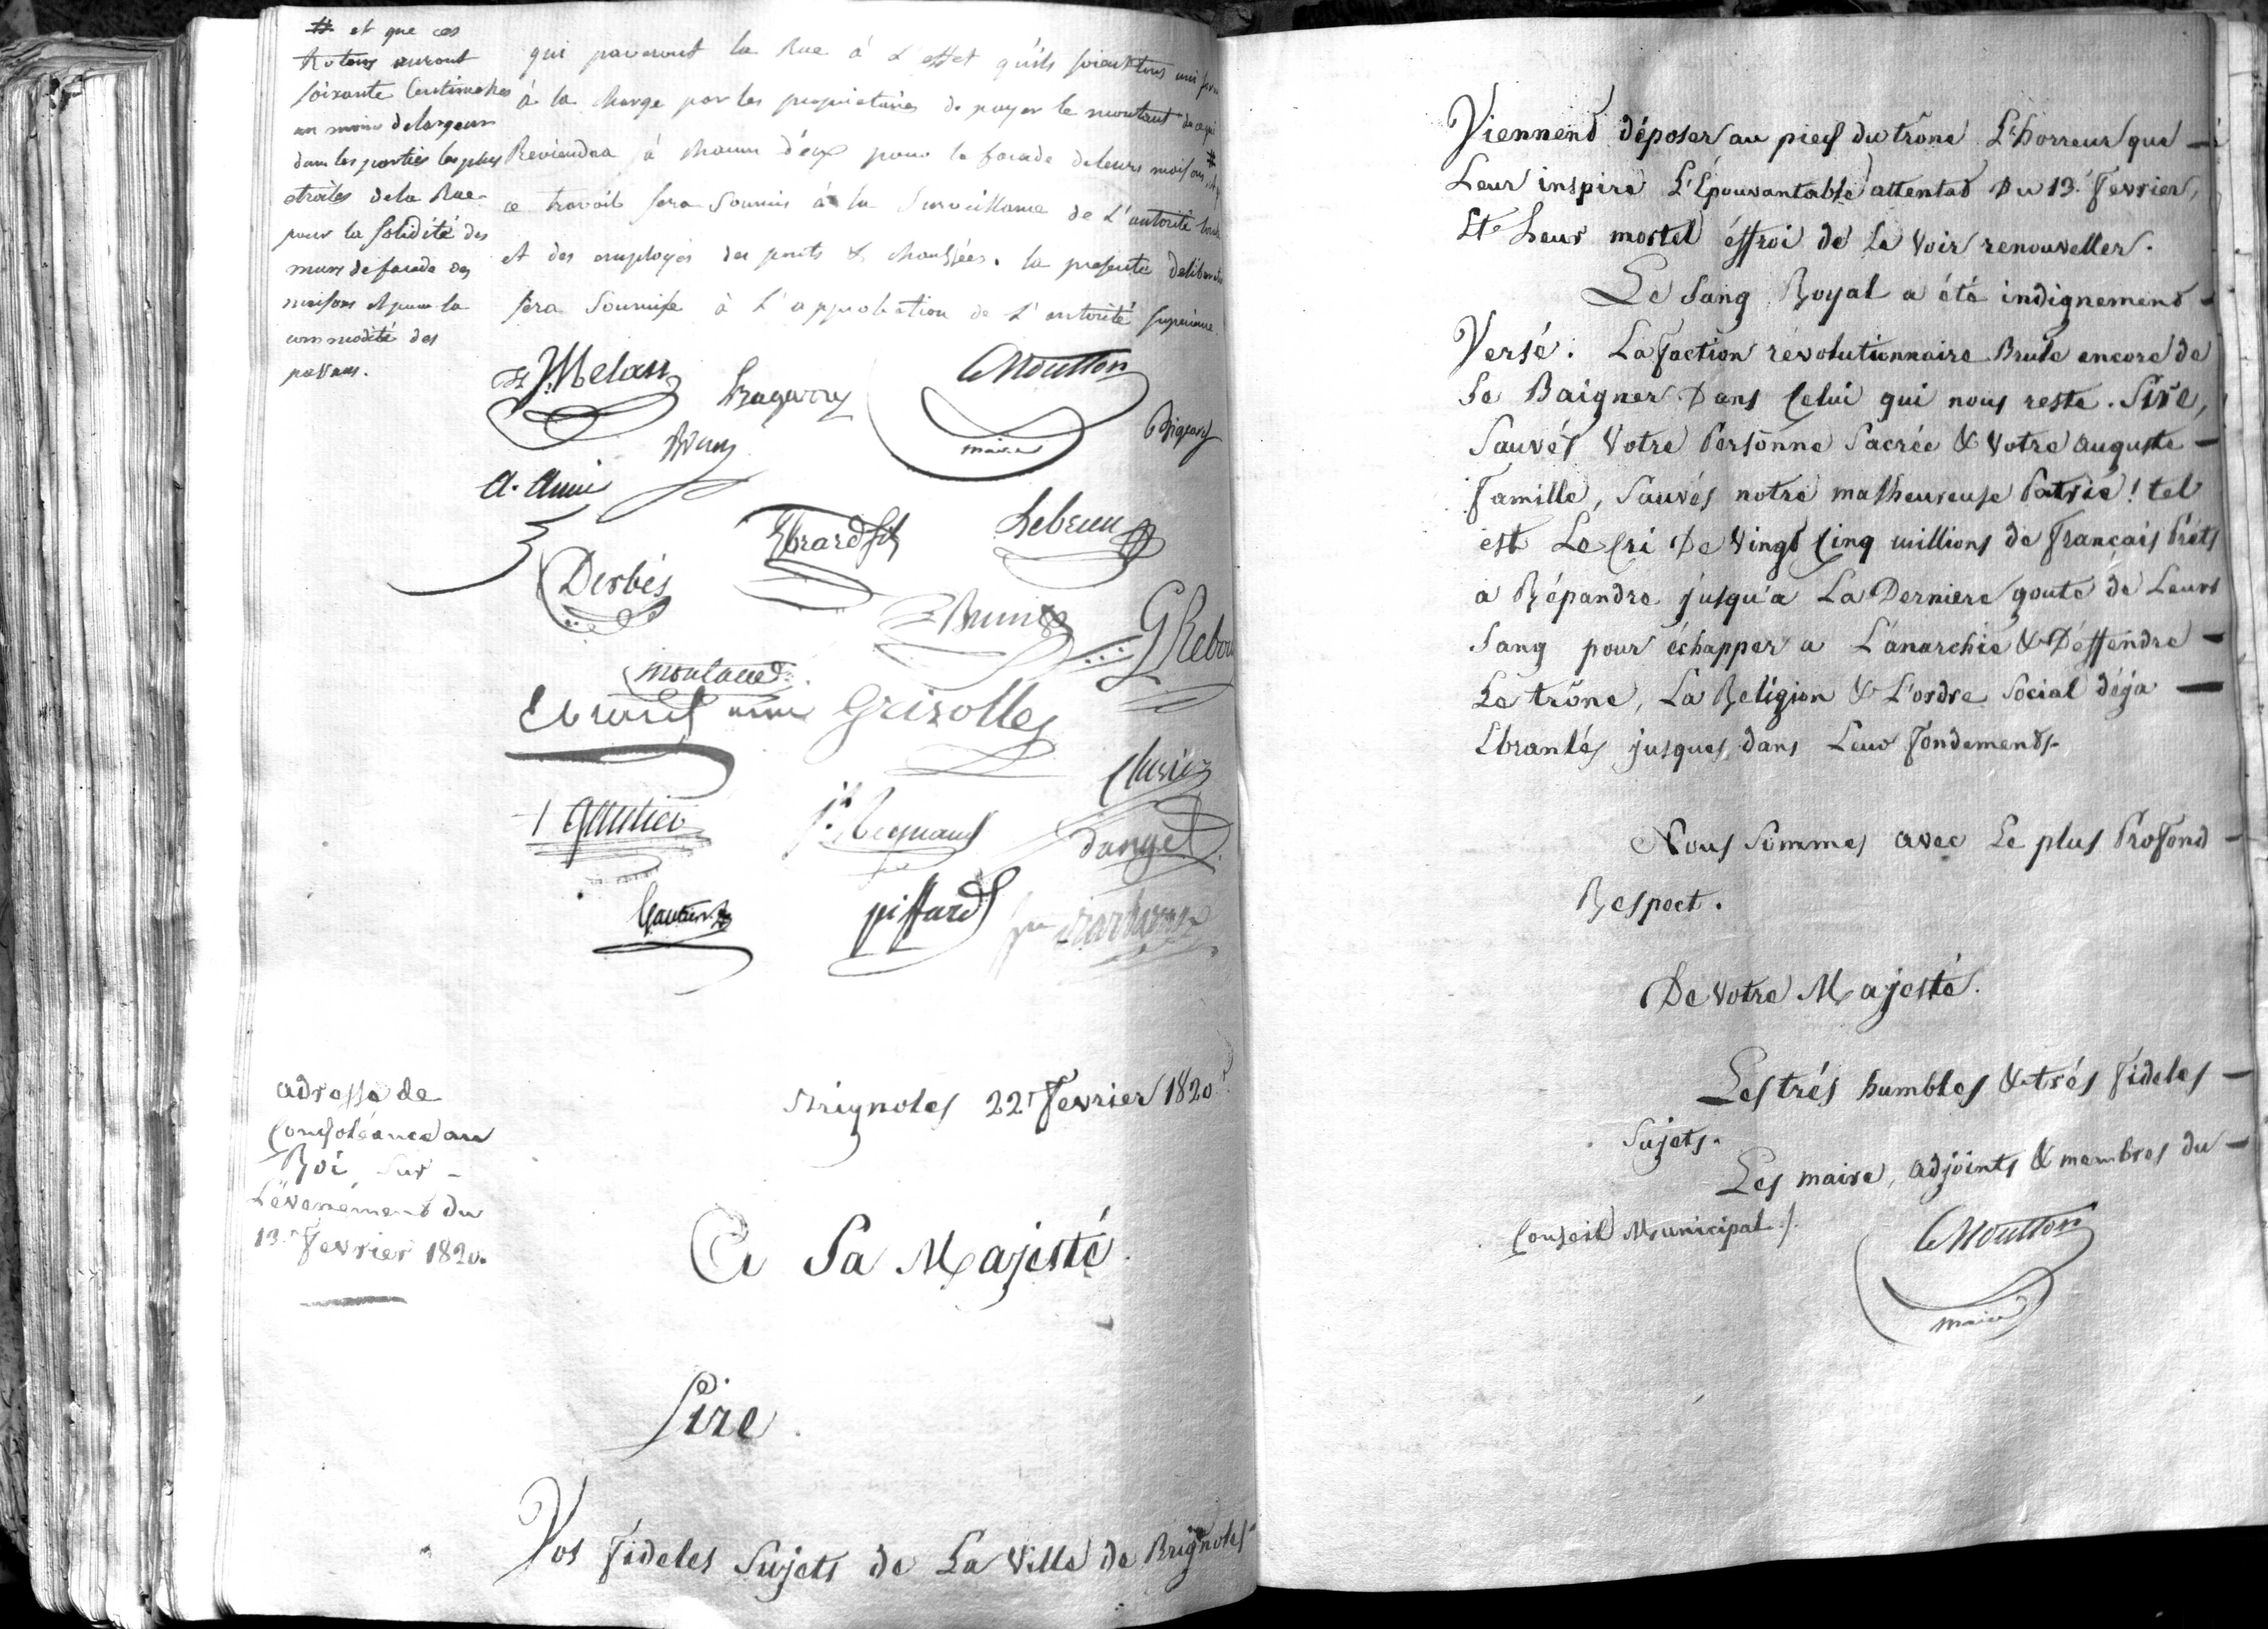 # et que ces
trotoirs auront
soixante Centimetres
au moins de largeur
dans les parties les plus
etroites de la Rue
pour la solidité des
murs de facade des
maisons et pour la
commodité des
passans.
qui paveront la Rue à L'effet qu'ils soient tous
à la charge par les proprietaires de payer le montant de ce qui
Reviendra à chacun d'eux pour la facade de leurs maisons, #
ce travail sera soumis à la Surveillance de L'autorité
et des employés des ponts & chaussées. la presente
sera soumise à L'approbation de L'autorité superieure.
Moutton
maire
Derbés
Ebrard fils
Lebrun
G Rebou
Moutaud
Ebrard
Grizolles
Clavier
Gautier
danget
piffard
adresse de
Condoléance au
Roi sur
L'évenément du
13. Fevrier 1820.
Brignoles 22 Fevrier 1820
A Sa Majesté.
Sire
Vos Fideles Sujets de La Ville de Brignoles
Viennent déposer au pied du trône L'horreur que
Leur inspire L'Épouvantable attentat Du 13. Fevrier,
Et Leur mortel éffroi de Le Voir renouveller.
Le Sang Royal a été indignement
Versé. La Faction révolutionnaire Brule encore de
Se Baigner Dans Celui qui nous reste. Sire,
Sauvés Votre Personne Sacrée & Votre auguste
Famille, Sauvés notre malheureuse Patrie! tel
est Le Cri De Vingt Cinq millions de Francais Préts
a Répandre jusqu'a La Derniere goute de Leurs
Sang pour échapper a L'anarchie & Déffendre
Le trône, La Religion & L'ordre Social déja
Ebranlés jusques dans Leur Fondements.
Nous Sommes avec Le plus Profond
Respect.
De Votre Majesté.
Les trés humbles & trés Fideles
Sujets.
Les maire, adjoints & membres du
Conseil Municipal ./.
Moutton
maire